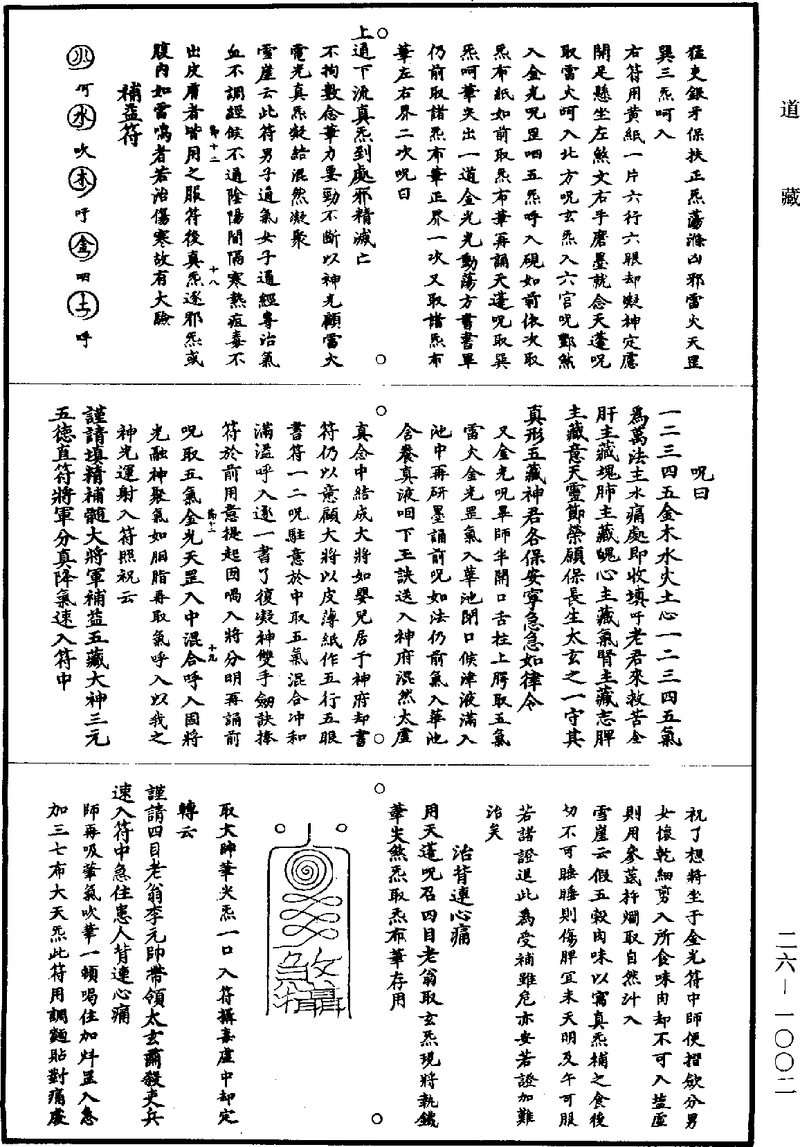 道藏
猛吏銀牙保扶正炁蕩滌凶邪雷火天罡
巽三炁呵入
右符用黃紙一片六行六眼却凝神定慮
開足懸坐左煞文右手磨墨就念天蓬呪
取雷火呵入北方呪玄炁入六宮呪酆然
入金光呪罡呬五炁呼入硯如前依次取
炁布紙如前取炁布筆再誦天蓬呪取巽
炁呵筆尖出一道金光光動蕩方書書單
仍前取諸炁布筆正界一次又取諸炁布
筆左右界二次呪曰
上通下流真炁到處邪精滅亡
不拘數念筆力要勁不斷以神光顧雷火
電光真炁凝結混然凝聚
雪崖云此符男子通氣女子通經專治氣
血不調經候不通陰陽間隔寒熱疽毒不
第十二 十八
出皮膚者皆用之服符後真炁逐邪炁或
腹內如雷鳴者若治傷寒故有大驗
補益符
火 呵 水 吹 木 呼 金 呬 土 呼
呪曰
一二三四五金木水火土心一二三四五氣
為萬法主水痛處即收填吁老君來救苦金
肝主藏魂肺主藏魄心主藏氣腎主藏志脾
主藏意天靈節榮願保長生太玄之一守其
真形五藏神君各保安寧急急如律令
又金光呪畢師半開口舌柱上腭取五氣
雷火金光罡氣入華池閉口候津液滿入
池中再研墨誦前呪如法仍前氣入華池
含養真液咽下玉訣送入神府混然太虛
真念中結成大將如嬰兒居于神府却書
符仍以意顧大將以皮薄紙作五行五眼
書符一二呪駐意於中取五氣混合冲和
滿溢呼入逐一書了復凝神雙手劒訣捧
符於前用意提起因喝入將分明再誦前
第十二 十九
呪取五氣金光天罡入中混合呼入固將
光融神聚氣如胭脂再取氣呼入以我之
神光運射入符照祝云
謹請填精補髓大將軍補益五藏大神三元
五德直符將軍分真降氣速入符中
祝了想將坐于金光符中師便摺歛分男
女懷乾細剪入所食味肉却不可入鹽盧
則用參蓋杵爛取自然汁入
雪崖云假五穀肉味以窩真炁補之食後
切不可睡睡則傷脾宜未天明及午可服
若諸證退此為受補雖危亦安若證加難
治矣
治背連心痛
用天蓬呪召四目老翁取玄炁現將執鐵
筆尖煞炁取炁布筆存用
取大帥筆尖炁一口入符攝毒虛中却定
轉云
謹請四目老翁李元帥帶領太玄霸殺吏兵
速入符中急住患人背連心痛
師再吸筆氣吹筆一頓喝住加斗罡入急
加三七布大天炁此符用調麵貼對痛處
二六—一〇〇二